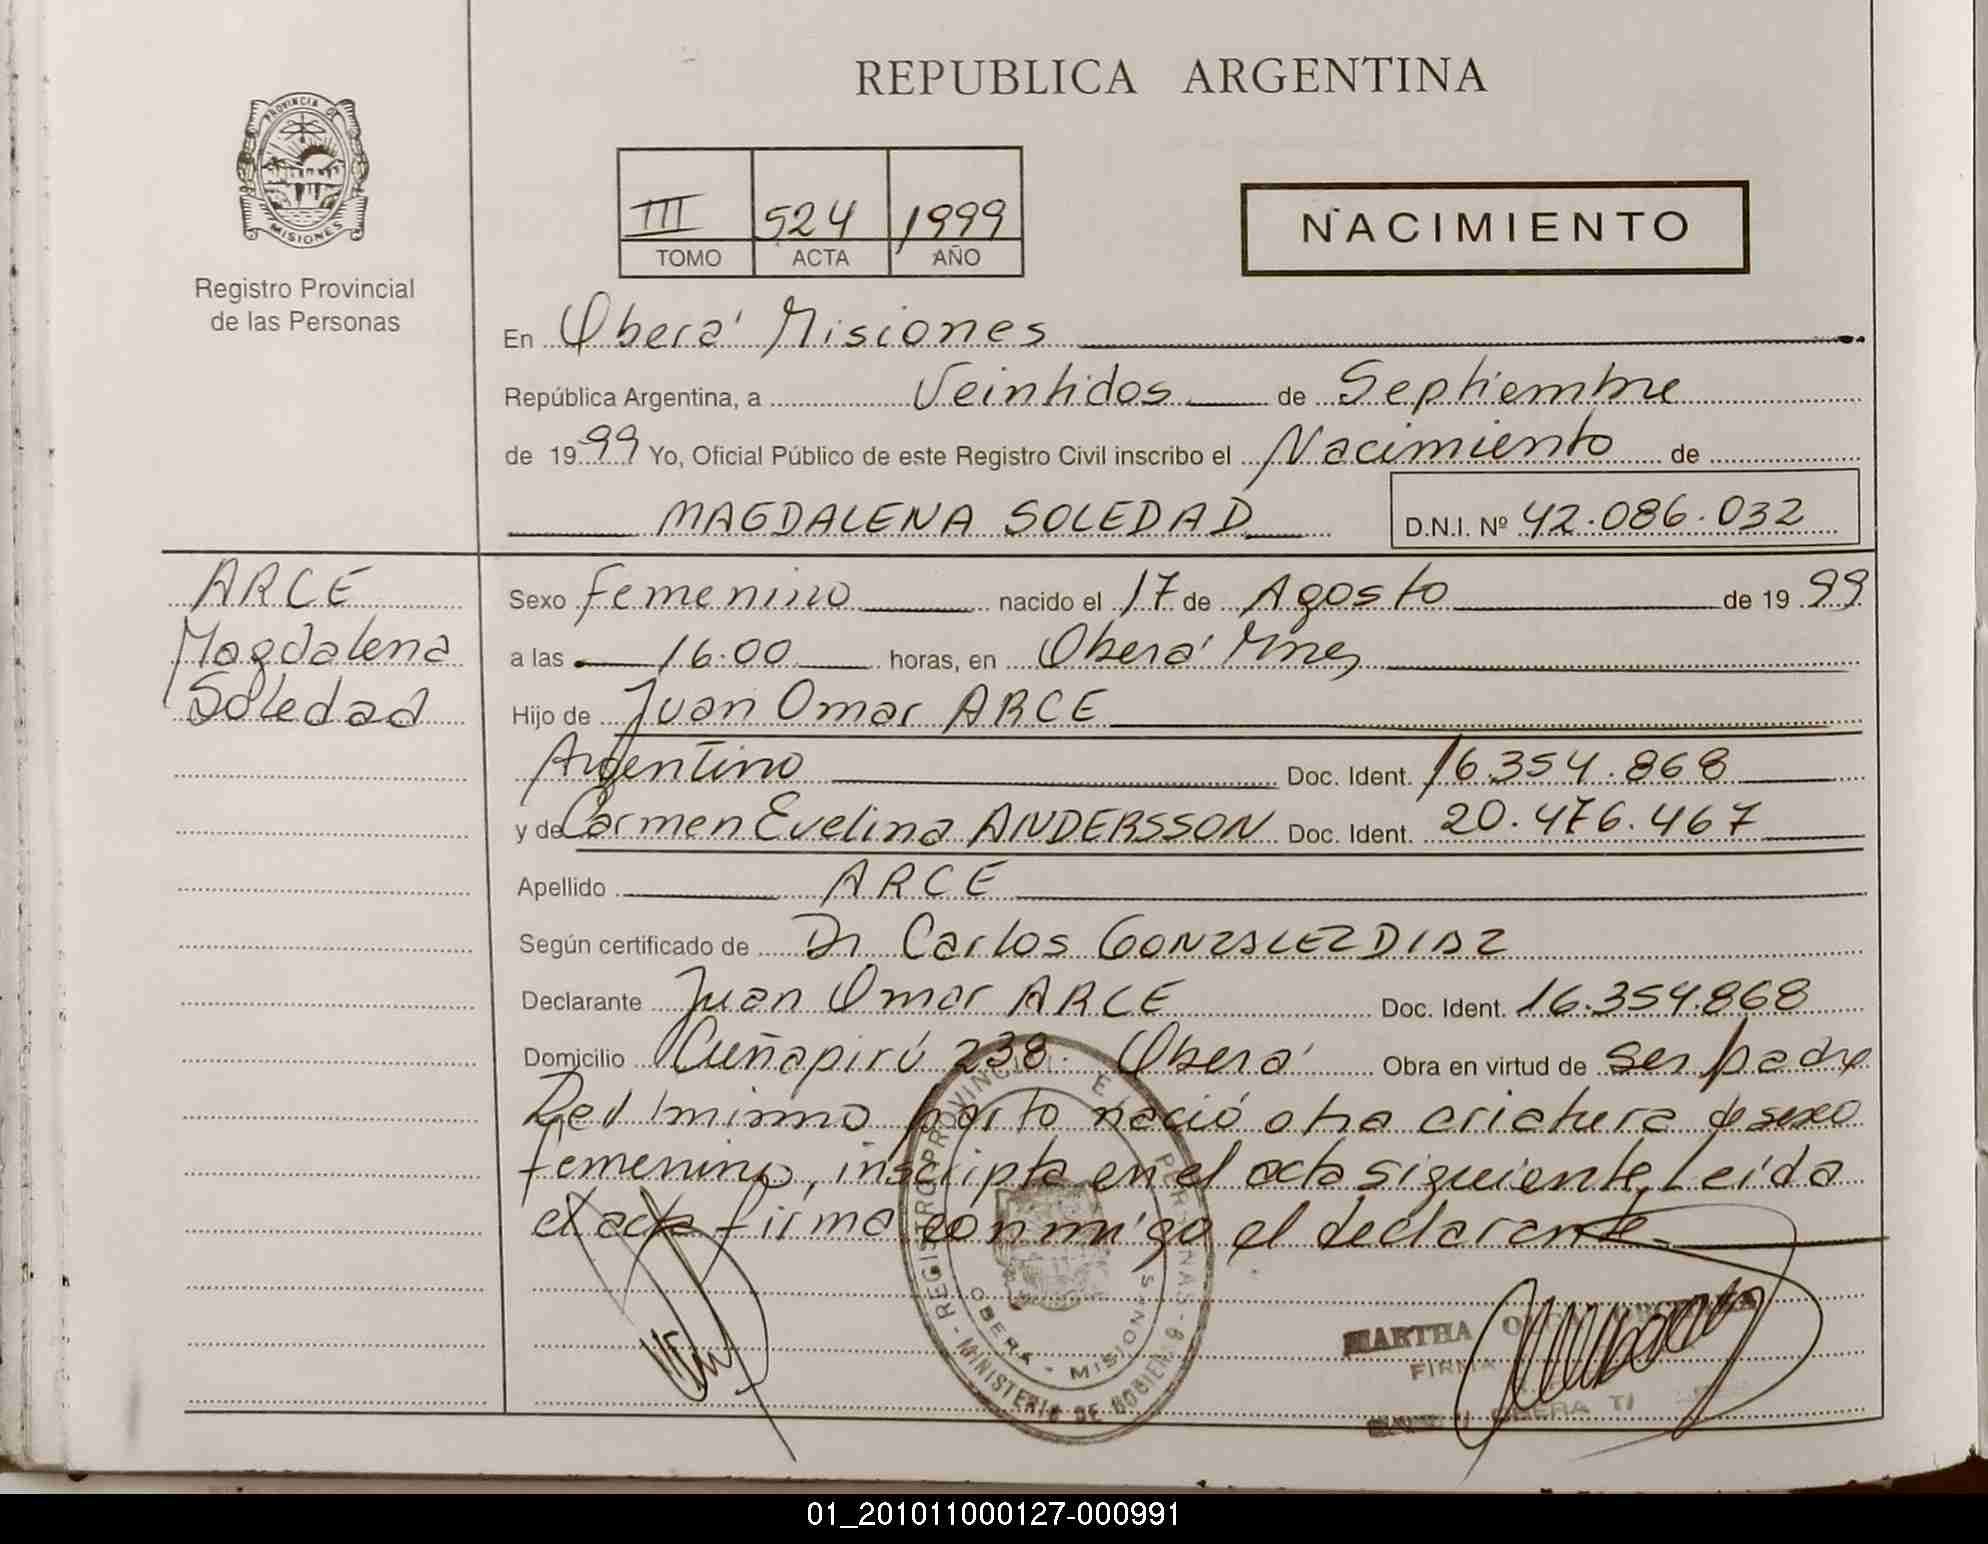 REPUBLICA ARGENTINA
PROVINCIA DE
MISIONES
Registro Provincial
de las Personas
III 524 1999
TOMO ACTA AÑO
NACIMIENTO
En Oberá Misiones
República Argentina, a Veintidos de Septiembre
de 1999 Yo, Oficial Público de este Registro Civil inscribo el Nacimiento de
MAGDALENA SOLEDAD D.N.I. Nº 42.086.032
ARCE
Magdalena
Soledad
Sexo femenino nacido el 17 de Agosto de 1999
a las 16.00 horas, en Oberá Mnes
Hijo de Juan Omar ARCE
Argentino Doc. Ident. 16.354.868
y de Carmen Evelina ANDERSSON Doc. Ident. 20.476.467
Apellido ARCE
Según certificado de Dr Carlos GONZALEZ DIAZ
Declarante Juan Omar ARCE Doc. Ident. 16.354.868
Domicilio Cuñapirú 238. Oberá Obra en virtud de ser padre
Del mismo parto nació otra criatura de sexo
femenino, inscripta en el acta siguiente, Leída
el acta firma conmigo el declarante.
REGISTRO PROVINCIAL DE PERSONAS - MINISTERIO DE GOBIERNO
OBERA - MISIONES
MARTHA OLGA
FIRMA
OBERA
01_201011000127-000991